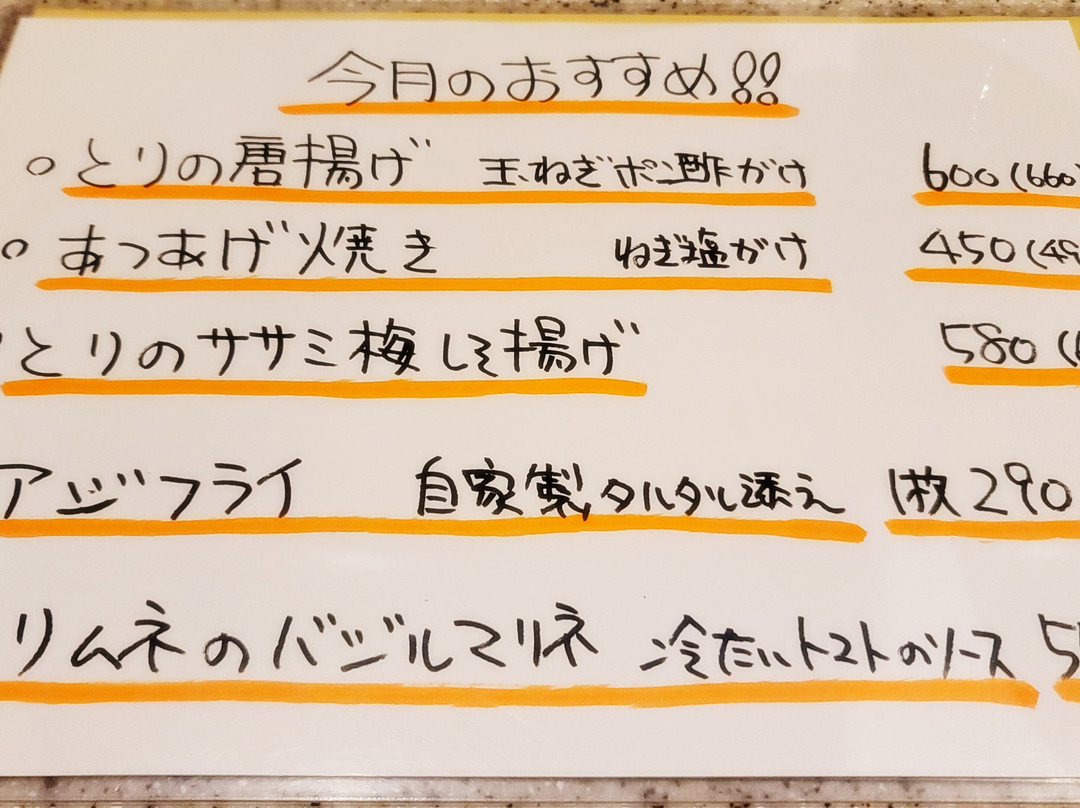 今月のおすすめ!!
○とりの唐揚げ 玉ねぎポン酢がけ 600(660
○あつあげ焼き ねぎ塩がけ 450(49
とりのササミ梅しそ揚げ 580(
アジフライ 自家製タルタル添え 1枚290
リムネのバジルマリネ 冷たいトマトのソース 5